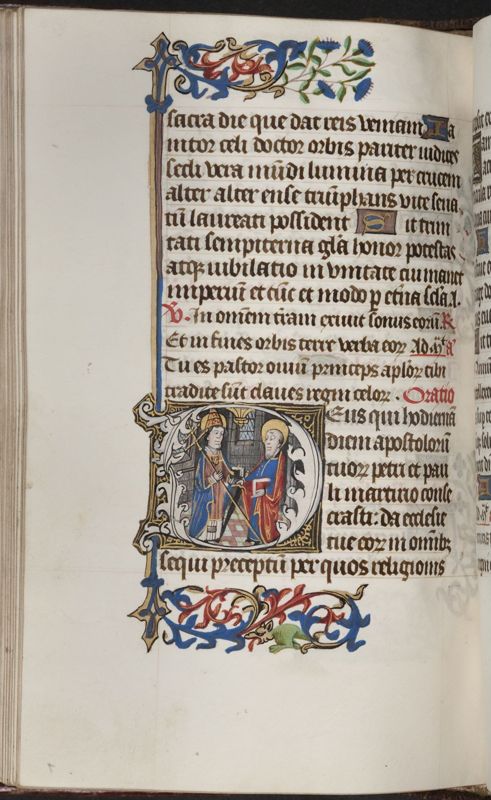 sacra die que dat reis veniam Ia
nitor celi doctor orbis pariter iudices
secli vera mũdi lumina per crucem
alter alter ense triũphans vite sena
tũ laureati possident Sit trini
tati sempiterna gl̃a honor potestas
atq iubilatio in vnitate cui manet
imperiũ et tũc et modo p et̃na scl̃a A.
V̷. In om̃em t̃ram exiuit sonus eorũ R̷
Et in fines orbis terre verba eoꝝ Ad
Tu es pastor ouiũ princeps apl̃oꝝ tibi
tradite sũt claues regni celoꝝ. Oratio
Deus qui hodiernã
diem apostolorũ
tuoꝝ petri et pau
li martirio conse
crasti: da ecclesie
tue eoꝝ in om̃ibꝫ
sequi preceptũ per quos religionis